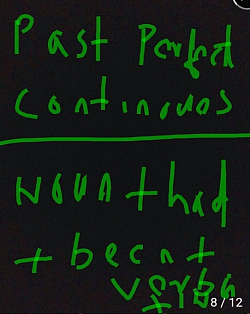 Past Perfect
Continous
Noun + had
+ been +
8/12